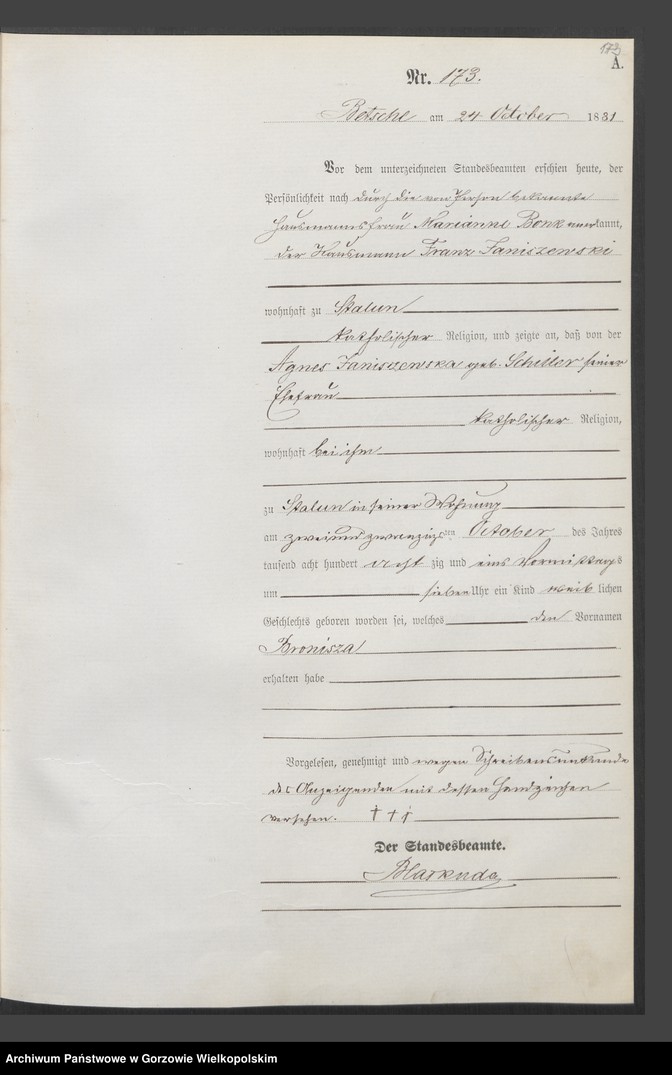 173
A.
Nr. 173.
Betsche am 24 October 1881
Vor dem unterzeichneten Standesbeamten erschien heute, der
Persönlichkeit nach durch die von Person bekannte
Hausmannsfrau Marianne Bonk anerkannt,
der Hausmann Franz Janiszewski
wohnhaft zu Stalun
katholischer Religion, und zeigte an, daß von der
Agnes Janiszewska geb. Schiller seiner
Ehefrau
katholischer Religion,
wohnhaft bei ihm
zu Stalun in seiner Wohnung
am zweiundzwanzigsten October des Jahres
tausend acht hundert acht zig und eins Vormittags
um sieben Uhr ein Kind weib lichen
Geschlechts geboren worden sei, welches den Vornamen
Bronisza
erhalten habe
Vorgelesen, genehmigt und wegen Schreibensunkunde
des Anzeigenden mit dessen Handzeichen
versehen. † † †
Der Standesbeamte.
Archiwum Państwowe w Gorzowie Wielkopolskim